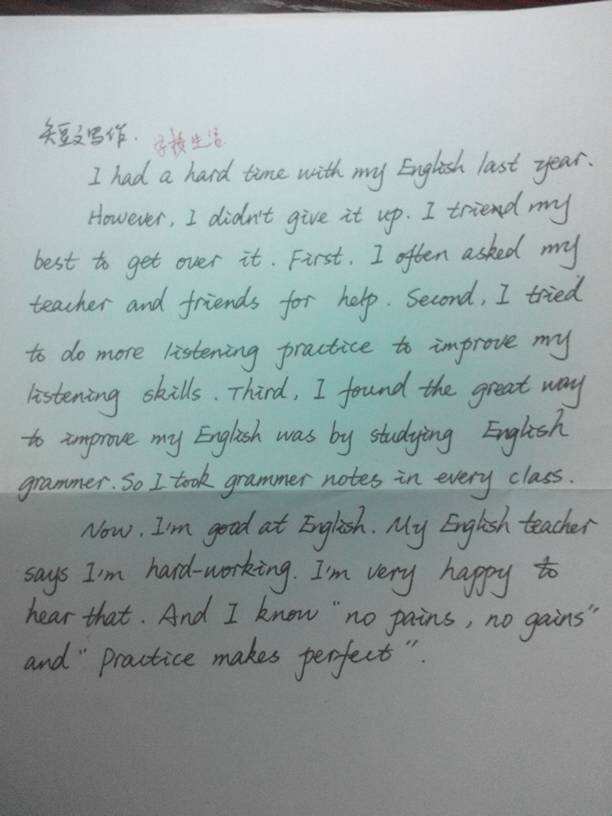 短文写作. 学校生活
I had a hard time with my English last year.
However, I didn't give it up. I triend my
best to get over it. First, I often asked my
teacher and friends for help. Second, I tried
to do more listening practice to improve my
listening skills. Third, I found the great way
to improve my English was by studying English
grammer. So I took grammer notes in every class.
Now, I'm good at English. My English teacher
says I'm hard-working. I'm very happy to
hear that. And I know "no pains, no gains"
and "Practice makes perfect".